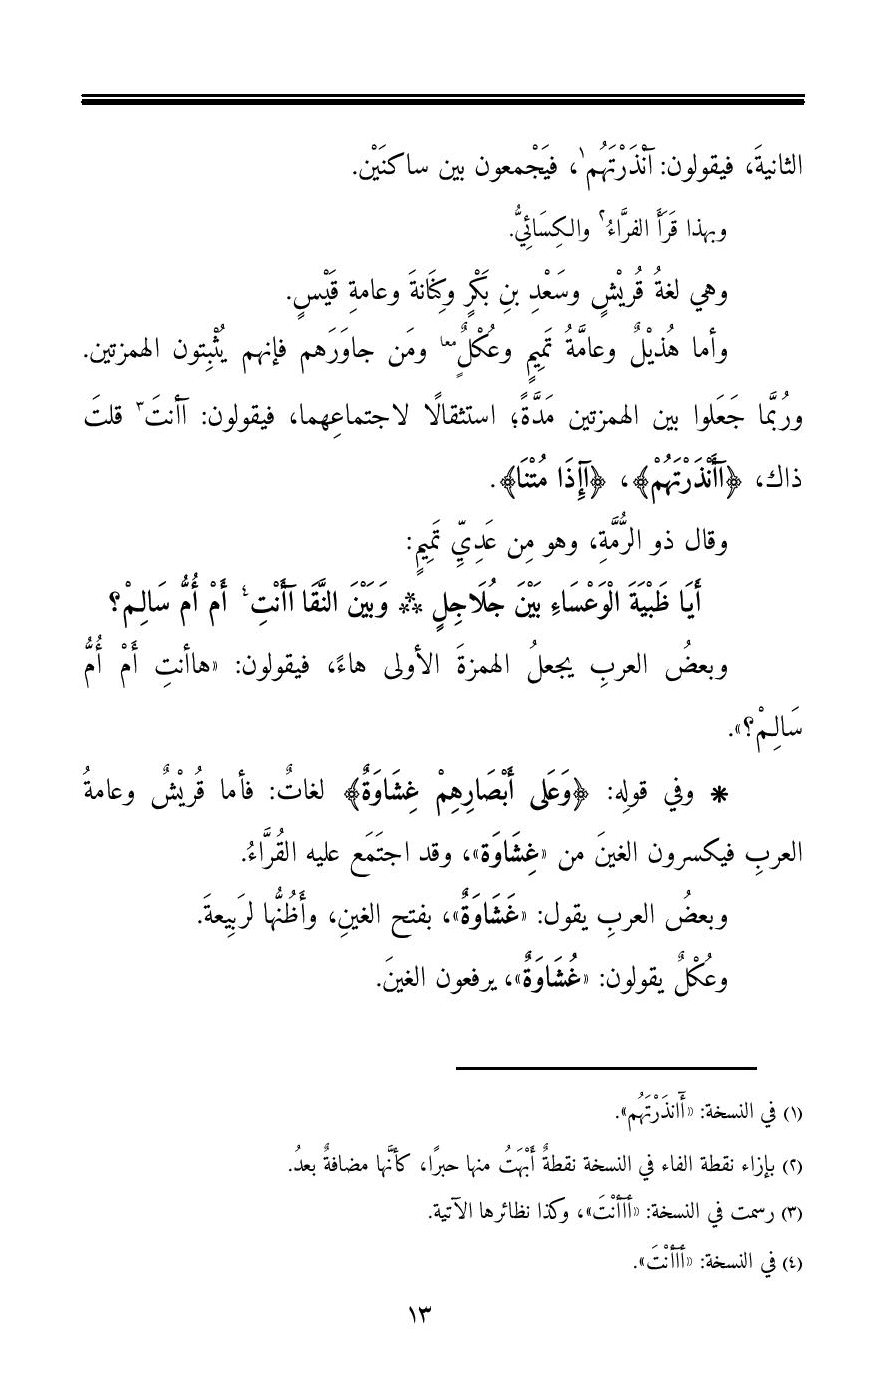 الثانيةَ، فيقولون: آنْذَرْتَهُم١، فيَجْمعون بين ساكنَيْن.
وبهذا قَرَأَ الفرَّاءُ٢ والكِسَائِيُّ.
وهي لغةُ قُريْشٍ وسَعْدِ بنِ بَكْرٍ وكِنَانةَ وعامةِ قَيْسٍ.
وأما هُذيْلٌ وعامَّةُ تَمِيمٍ وعُكْلٌٍ معا ومَن جاوَرَهم فإنهم يُثْبِتون الهمزتين.
ورُبَّما جَعَلوا بين الهمزتين مَدَّةً؛ استثقالًا لاجتماعِهما، فيقولون: آأنتَ٣ قلتَ
ذاك، ﴿آأَنْذَرْتَهُمْ﴾، ﴿آإِذَا مُتْنَا﴾.
وقال ذو الرُّمَّةِ، وهو مِن عَدِيِّ تَمِيمٍ:
أَيَا ظَبْيَةَ الْوَعْسَاءِ بَيْنَ جُلَاجِلٍ ** وَبَيْنَ النَّقَا آأَنْتِ٤ أَمْ أُمُّ سَالِمْ؟
وبعضُ العربِ يجعلُ الهمزةَ الأولى هاءً، فيقولون: «هاأنتِ أَمْ أُمُّ
سَالِمْ؟».
* وفي قولِه: ﴿وَعَلَى أَبْصَارِهِمْ غِشَاوَةٌ﴾ لغاتٌ: فأما قُريْشٌ وعامةُ
العربِ فيكسرون الغينَ من «غِشَاوَة»، وقد اجتَمَع عليه القُرَّاءُ.
وبعضُ العربِ يقول: «غَشَاوَةٌ»، بفتح الغينِ، وأَظُنُّها لرَبِيعةَ.
وعُكْلٌ يقولون: «غُشَاوَةٌ»، يرفعون الغينَ.
(١) في النسخة: «أٓانذَرْتَهُم».
(٢) بإزاء نقطة الفاء في النسخة نقطةٌ أَبْهَتُ منها حبرًا، كأنَّها مضافةٌ بعدُ.
(٣) رسمت في النسخة: «أاٰأنْتَ»، وكذا نظائرها الآتية.
(٤) في النسخة: «أاأنْتَ».
١٣